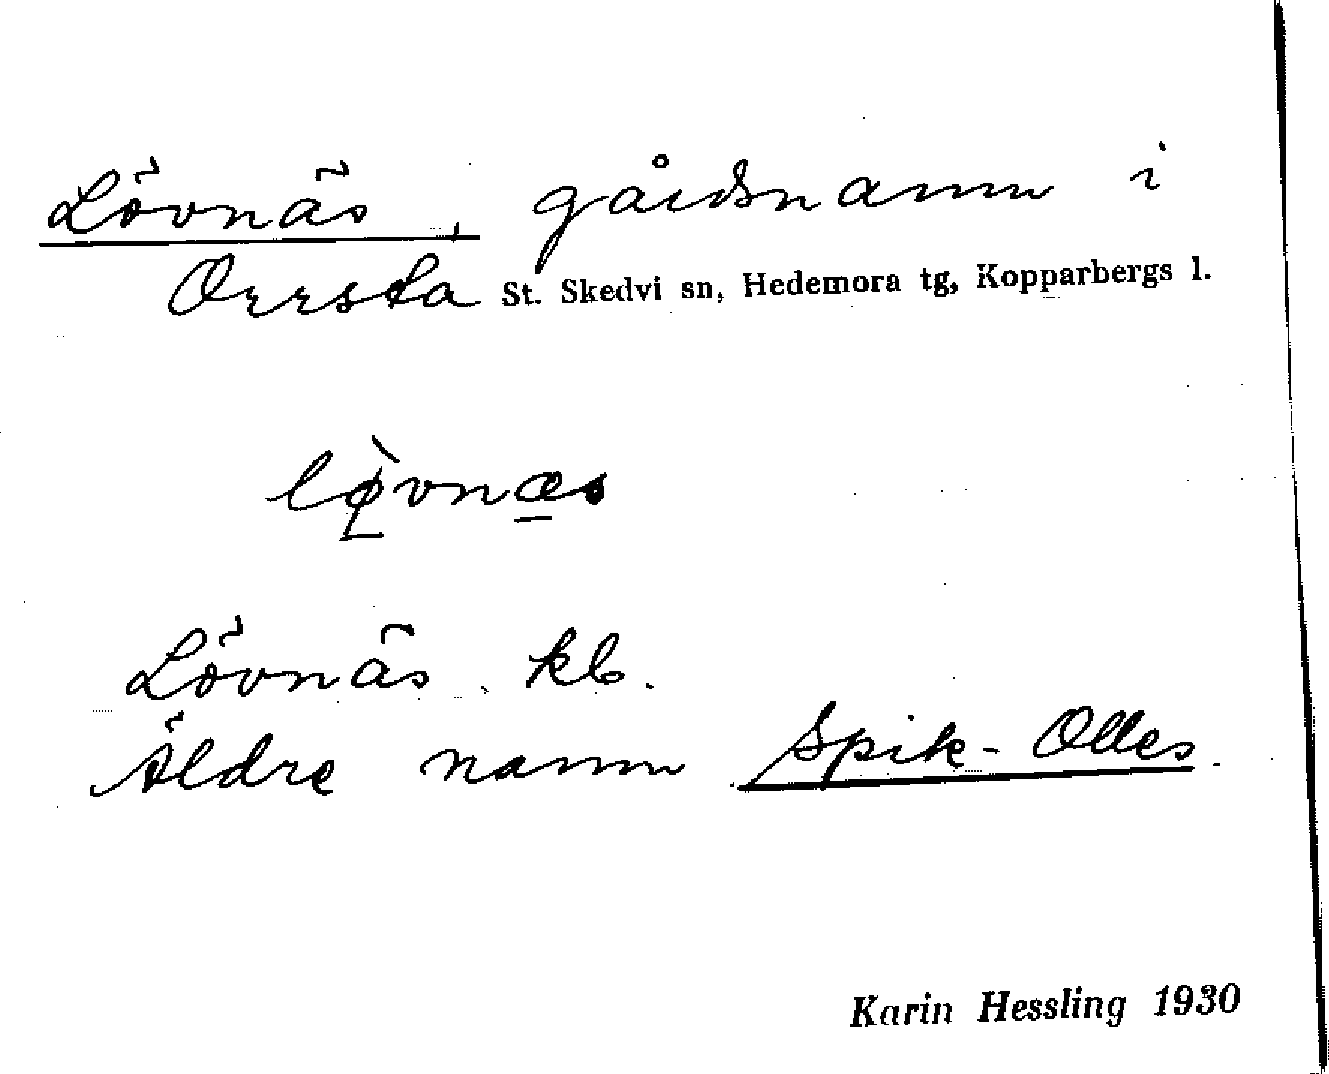 Lövnäs, gårdsnamn i
Orrsta St. Skedvi sn, Hedemora tg, Kopparbergs l.
lø̨̀vnæ̠s
Lövnäs. kb.
Äldre namn Spik-Olles.
Karin Hessling 1930